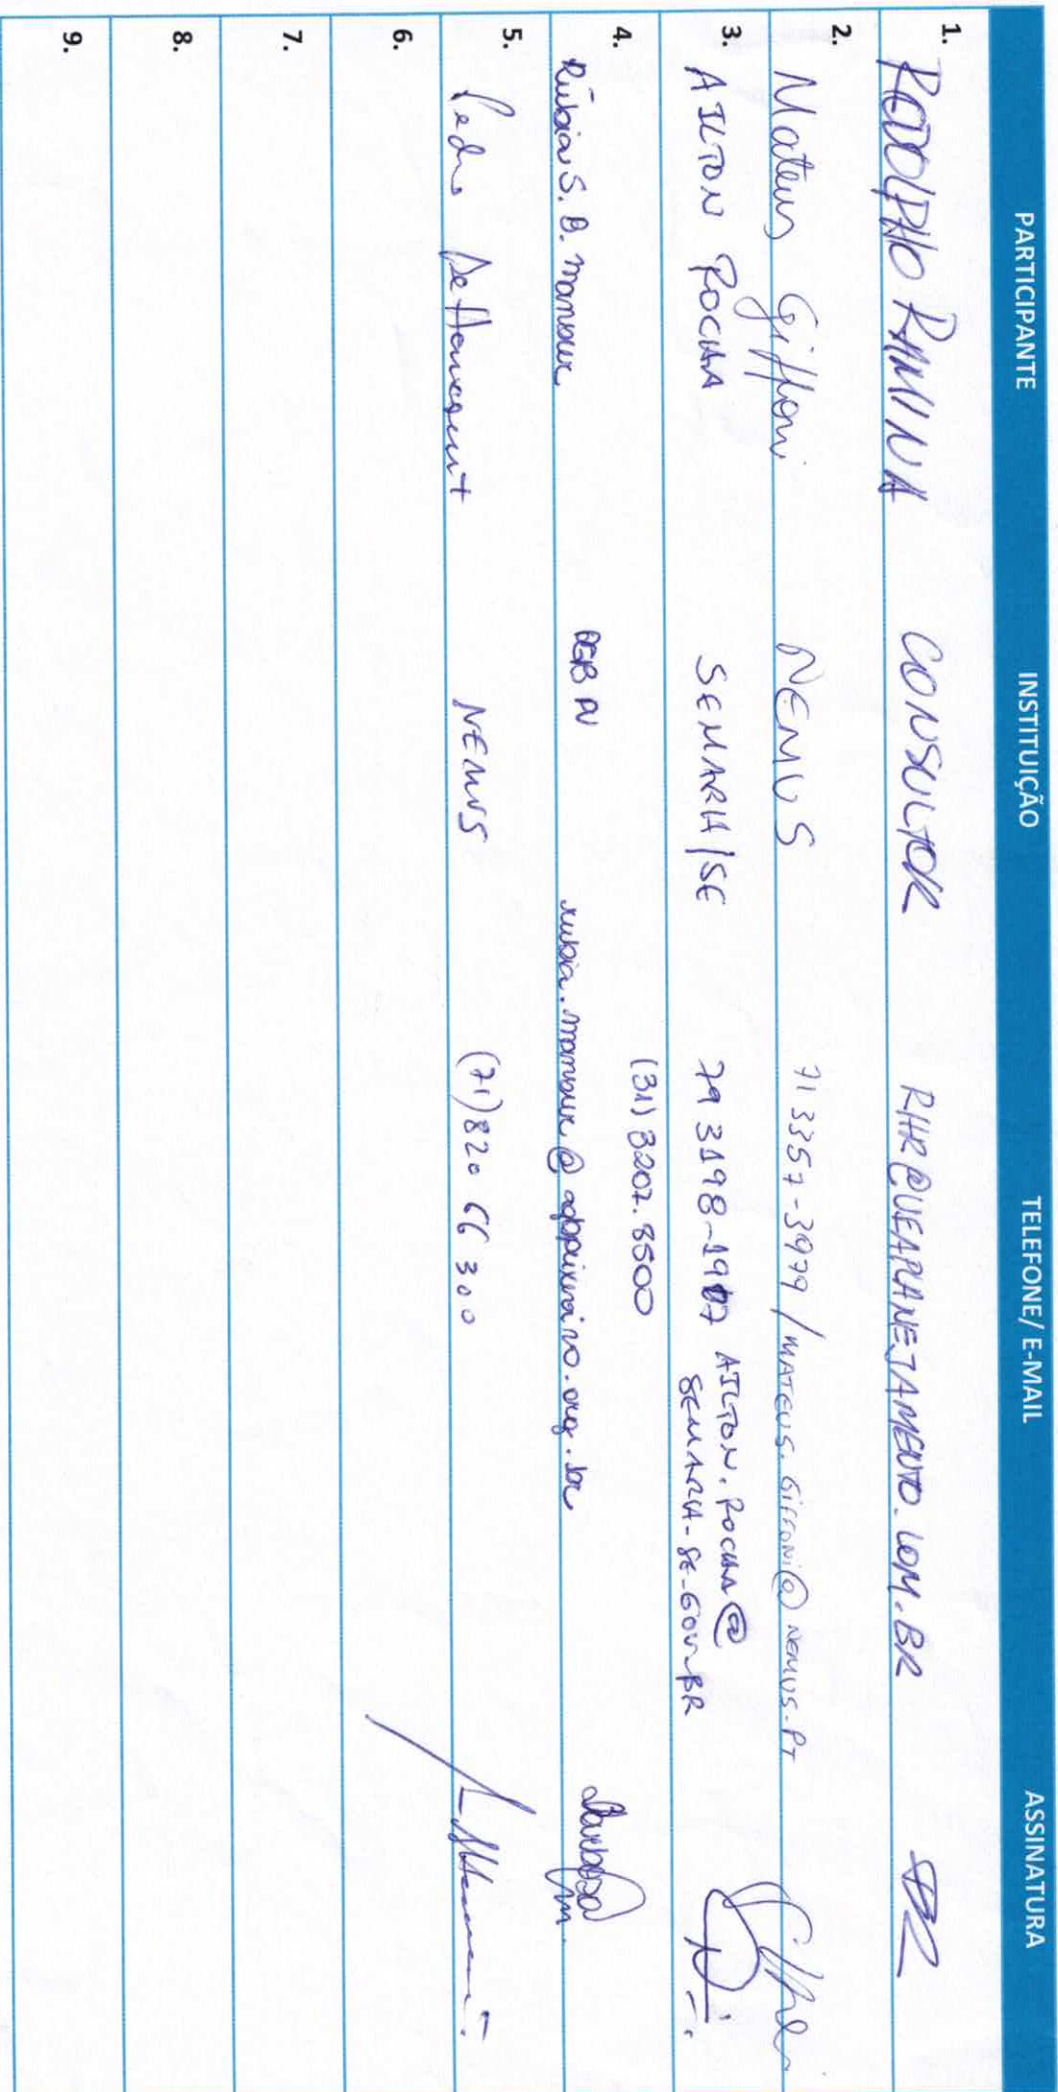 PARTICIPANTE INSTITUIÇÃO TELEFONE/ E-MAIL ASSINATURA
1. RODOLPHO RAMINA CONSULTOR RHR@VEAPLANEJAMENTO.COM.BR
2. Mateus Giffoni NEMUS 71 3357-3979 / MATEUS.GIFFONI@NEMUS.PT
3. AILTON ROCHA SEMARH/SE 79 3198-1907 AILTON.ROCHA@
SEMARH-SE-GOV-BR
4. (31) 3207.8500
Rúbia S. B. Mansur rubia.mansur@agbpeixevivo.org.br
5. Pedro Bettencourt NEMUS (71) 820 66 300
6.
7.
8.
9.